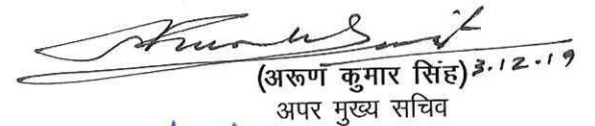 (अरूण कुमार सिंह) 3.12.19
अपर मुख्य सचिव